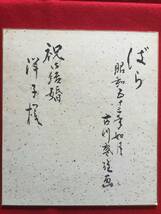 ばら
昭和五十三年如月
古川
画
祝御結婚
洋子様